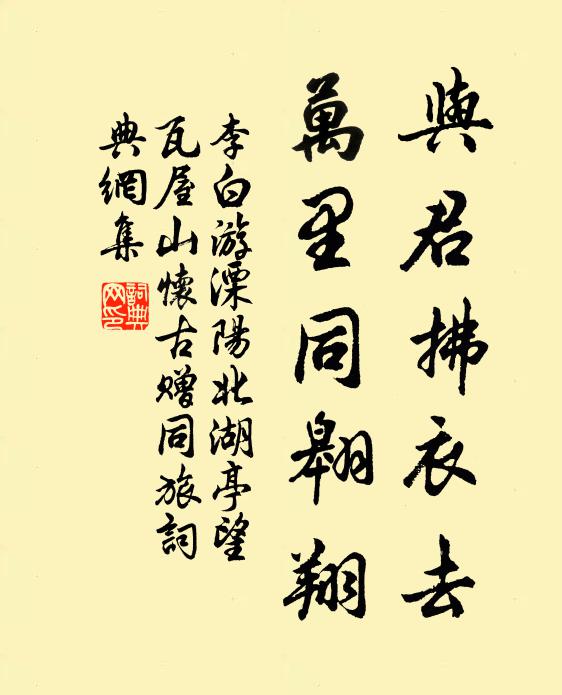 與君拂衣去
萬里同翱翔
李白游溧陽北湖亭望
瓦屋山懷古贈同旅詞
典網集
詞典
网印